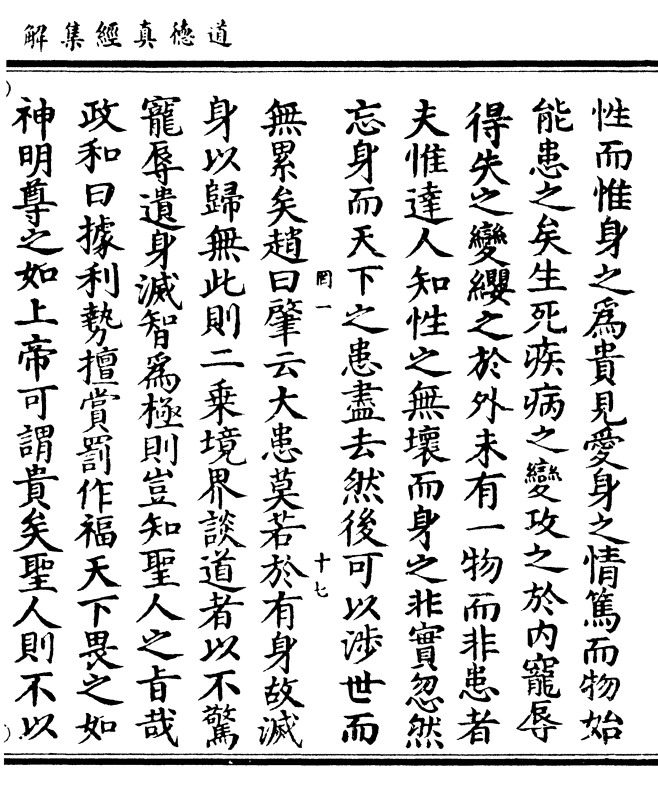 道德真經集解
性而惟身之為貴見愛身之情篤而物始
能患之矣生死疾病之變攻之於內寵辱
得失之變纓之於外未有一物而非患者
夫惟達人知性之無壞而身之非實忽然
忘身而天下之患盡去然後可以涉世而
罔一
十七
無累矣趙曰肇云大患莫若於有身故滅
身以歸無此則二乗境界談道者以不驚
寵辱遺身滅智為極則豈知聖人之旨哉
政和曰據利勢擅賞罰作福天下畏之如
神明尊之如上帝可謂貴矣聖人則不以